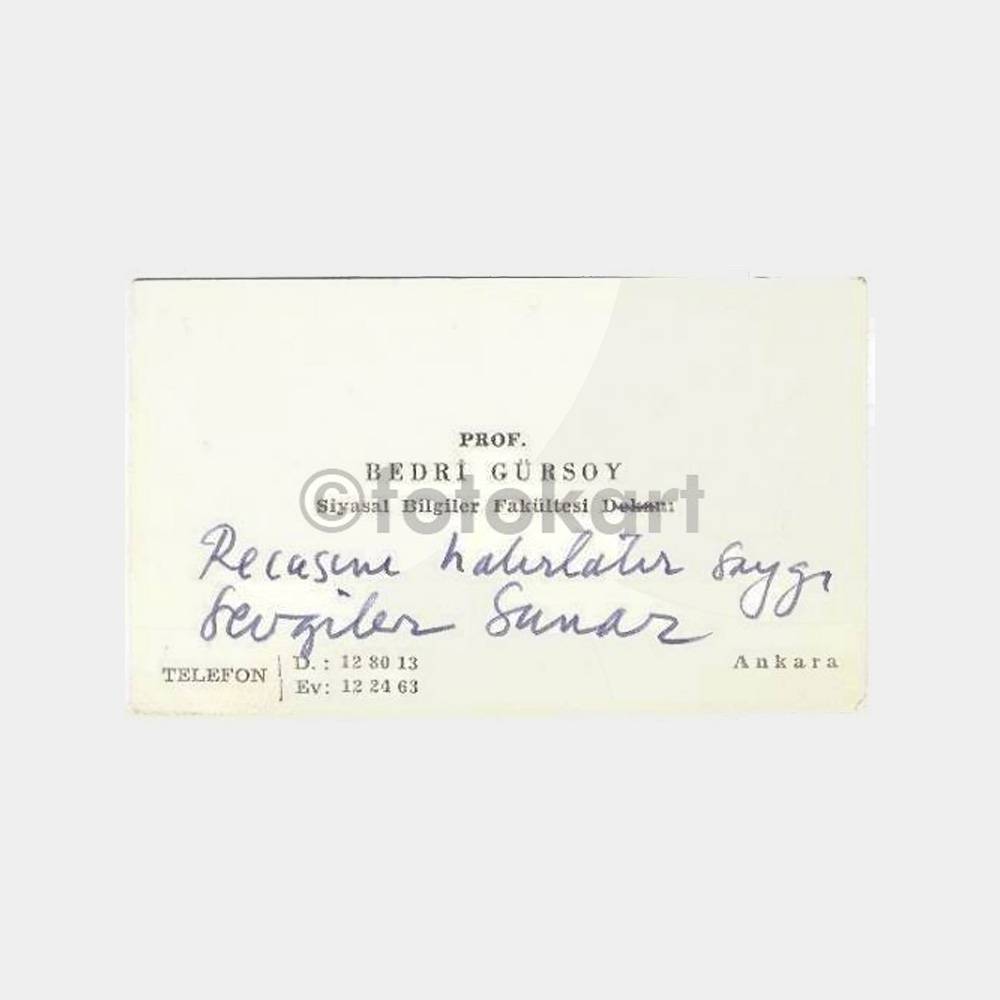 PROF.
BEDRİ GÜRSOY
Siyasal Bilgiler Fakültesi Dekanı
©fotokart
Recasını hatırlatır saygı
Sevgiler Sunar
TELEFON D. : 12 80 13
Ev: 12 24 63
Ankara